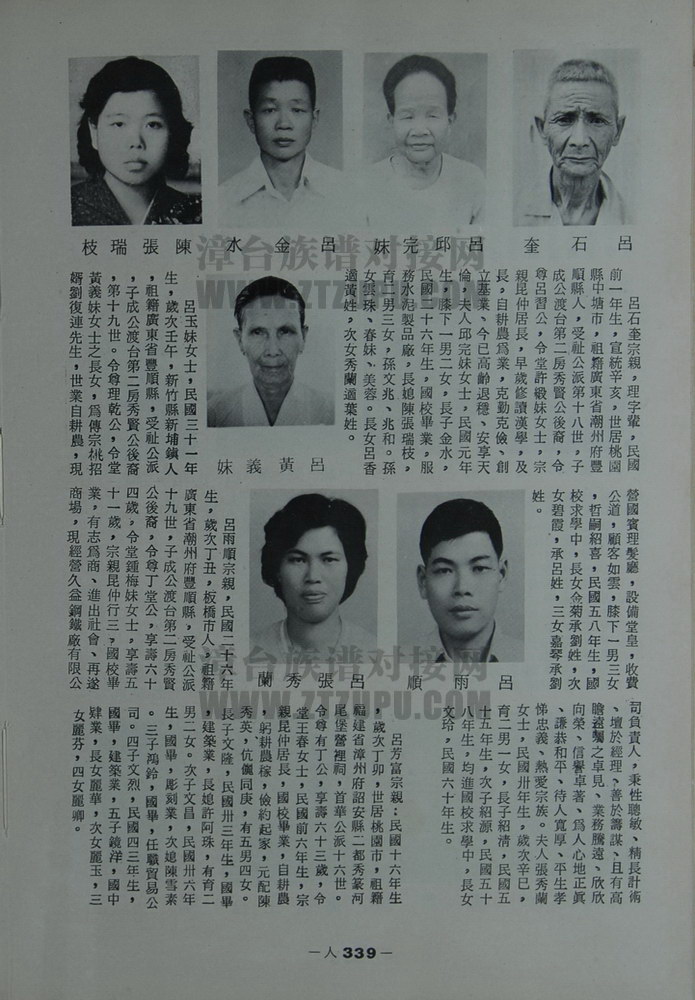 呂石奎
呂邱完妹
呂金水
陳張瑞枝
呂石奎宗親，理字輩，民國
前一年生，宣統辛亥，世居桃園
縣中壢市，祖籍廣東省潮州府豐
順縣人，受祉公派第十八世，子
成公渡台第二房秀賢公後裔，令
尊呂習公，令堂許緞妹女士，宗
親昆仲居長，早歲修讀漢學，及
長，自耕農爲業，克勤克儉、創
立基業、今已高齡退穩、安享天
倫，夫人邱完妹女士，民國元年
生，膝下一男二女，長子金水，
民國二十六年生，國校畢業，服
務水泥製品廠，長媳陳張瑞枝，
育二男三女，孫文兆、兆和。孫
女雲珠、春妹、美蓉。長女呂香
適黃姓，次女秀蘭適葉姓。
呂黃義妹
呂玉妹女士，民國三十一年
生，歲次壬午，新竹縣新埔鎮人
，祖籍廣東省豐順縣，受祉公派
，子成公渡台第二房秀賢公後裔
，第十九世。令尊理乾公，令堂
黃義妹女士之長女，爲傳宗桃招
婿劉復連先生，世業自耕農，現
營國賓理髮廳，設備堂皇，收費
公道，顧客如雲，膝下一男三女
，哲嗣紹喜，民國五八年生，國
校求學中，長女金菊承劉姓，次
女碧霞，承呂姓，三女嘉琴承劉
姓。
呂雨順
呂張秀蘭
呂雨順宗親，民國二十六年
生，歲次丁丑，板橋市人，祖籍
廣東省潮州府豐順縣，受祉公派
十九世，子成公渡台第二房秀賢
公後裔，令尊丁堂公，享壽六十
四歲，令堂鍾梅妹女士，享壽五
十一歲，宗親昆仲行三，國校畢
業，有志爲商、進出社會、再遂
商場，現經營久益鋼鐵廠有限公
司負責人，秉性聰敏、精長計術
、壇於經理、善於籌謀、且有高
瞻遠矚之卓見、業務騰遠、欣欣
向榮、信譽卓著、爲人心地正眞
、謙恭和平、待人寬厚、平生孝
悌忠義、熱愛宗族。夫人張秀蘭
女士，民國卅年生，歲次辛巳，
育二男一女，長子紹清，民國五
十五年生，次子紹源，民國五十
八年生，均進國校求學中，長女
文玲，民國六十年生。
呂芳富宗親：民國十六年生
，歲次丁卯，世居桃園市，祖籍
福建省漳州府詔安縣二都秀篆河
尾堡營裡祠，首華公派十六世。
令尊有丁公，享壽六十三歲，令
堂王春女士，民國前六年生，宗
親昆仲居長，國校畢業，自耕農
，躬耕農稼，儉約起家，元配陳
秀英，伉儷同庚，有五男四女。
長子文隆，民國卅三年生，國畢
，建築業，長媳許阿珠，有育二
男二女。次子文昌，民國卅六年
生，國畢，彫刻業，次媳陳雪素
。三子鴻鈴，國畢，任職貿易公
司。四子文烈，民國四三年生，
國畢，建築業，五子鏡洋，國中
肄業，長女麗華，次女麗玉，三
女麗芬，四女麗卿。
—人339—
漳台族谱对接网
WWW.ZTZUPU.COM
漳台族谱对接网
WWW.ZTZUPU.COM